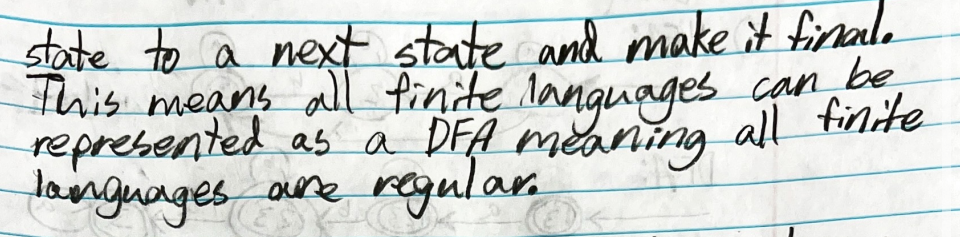 state to a next state and make it final.
This means all finite languages can be
represented as a DFA meaning all finite
languages are regular.